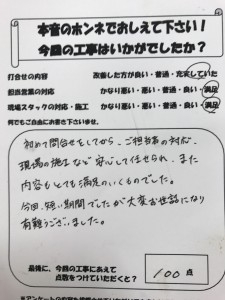 本音のホンネでおしえて下さい！
今回の工事はいかがでしたか？
打合せの内容 改善した方が良い・普通・充実していた
担当営業の対応 かなり悪い・悪い・普通・良い・満足
現場スタッフの対応・施工 かなり悪い・悪い・普通・良い・満足
何でもご自由にお書き下さいませ。
初めて問合せをしてから、ご担当者の対応、
現場の施工など安心して任せられ、また
内容もとても満足のいくものでした。
今回、短い期間でしたが大変お世話になり
有難うございました。
最後に、今回の工事にあえて
点数をつけていただくと？
100 点